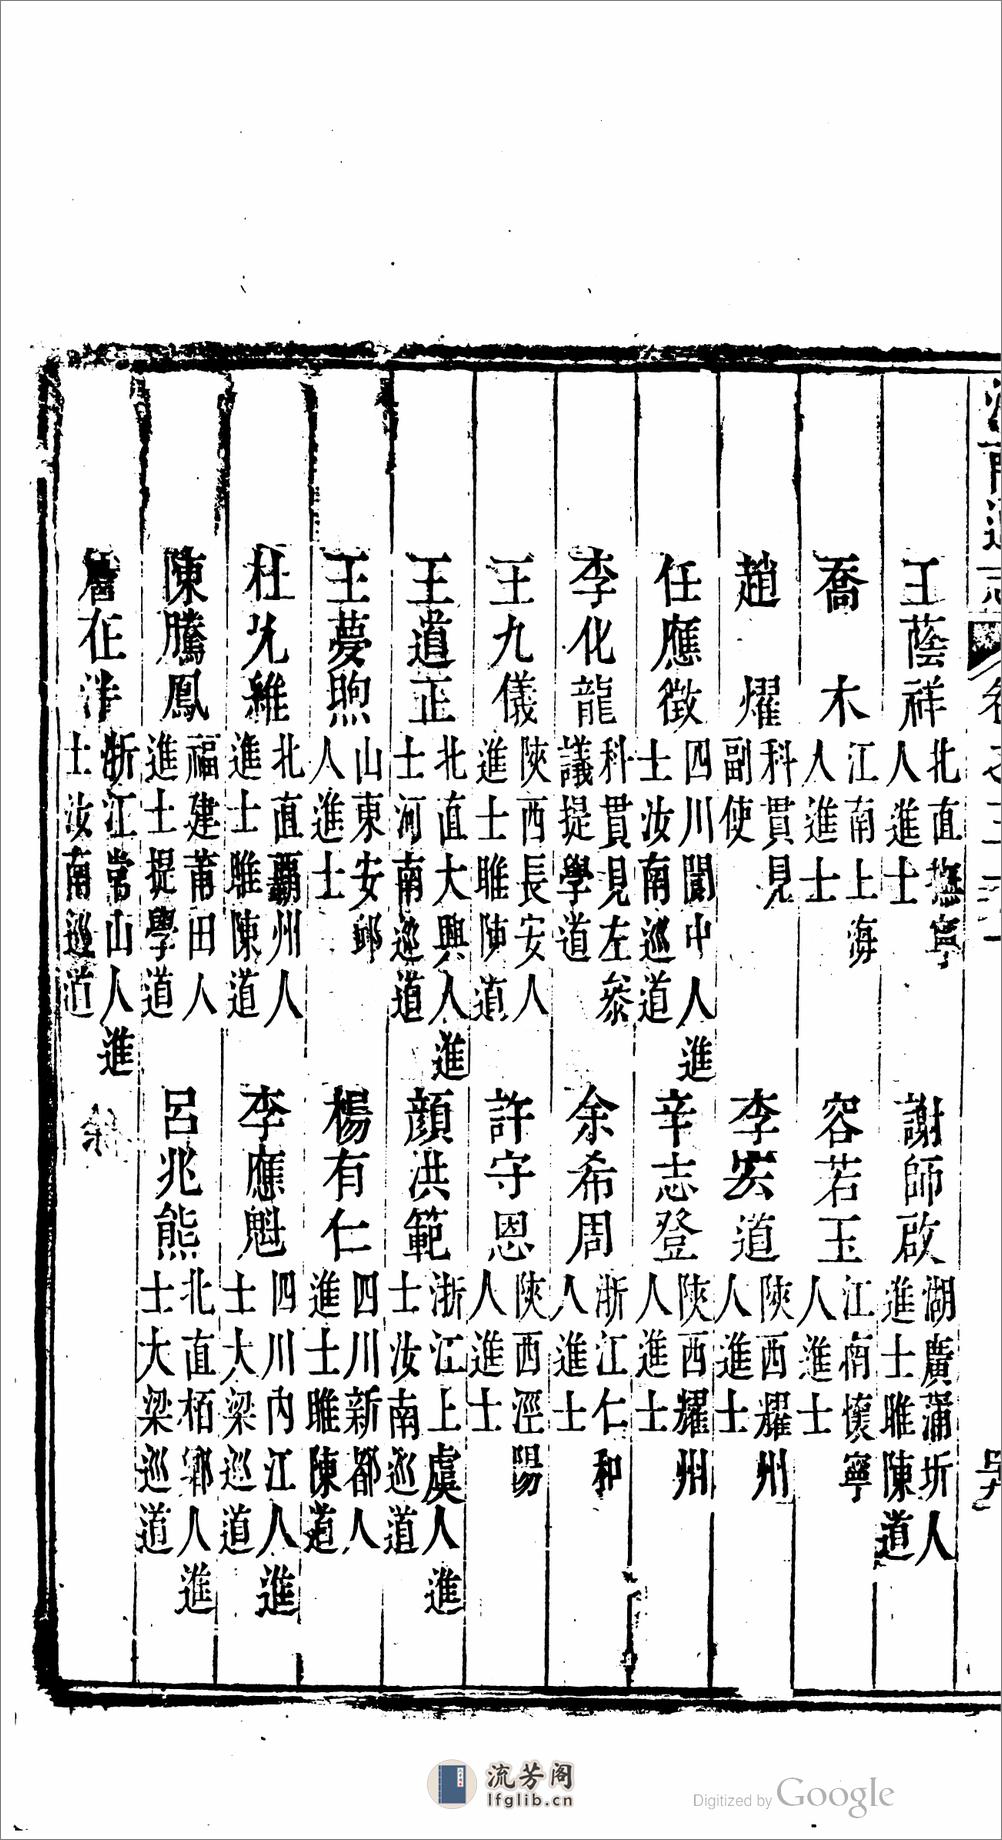 王蔭祥 北直撫寧人進士
謝師啟 湖廣蒲圻人進士睢陳道
喬木 江南上海人進士
容若玉 江南懷寧人進士
趙燿 科貫見副使
李宏道 陝西耀州人進士
任應徵 四川閬中人進士汝南巡道
辛志登 陝西耀州人進士
李化龍 科貫見左叅議提學道
余希周 浙江仁和人進士
王九儀 陝西長安人進士睢陳道
許守恩 陝西涇陽人進士
王道正 北直大興人進士河南巡道
顏洪範 浙江上虞人進士汝南巡道
王夢煦 山東安邱人進士
楊有仁 四川新都人進士睢陳道
杜光維 北直霸州人進士睢陳道
李應魁 四川內江人進士大梁巡道
陳騰鳳 福建莆田人進士提學道
呂兆熊 北直栢鄉人進士大梁巡道
詹在泮 浙江常山人進士汝南巡道
流芳阁
lfglib.cn
Digitized by Google